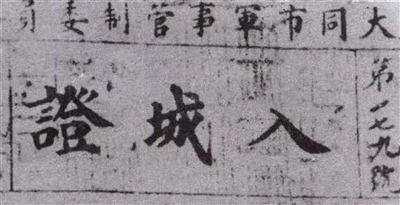 大同市軍事管制委員
第一七九號
入城證